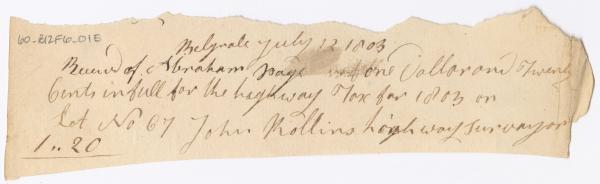 60-B12F6-01E
Belgrade July 12 1803
Receivd of Abraham Page one Dollar and Twenty
Cents in full for the highway Tax for 1803 on
Lot No 67 John Rollins highway surveyor
1 .. 20